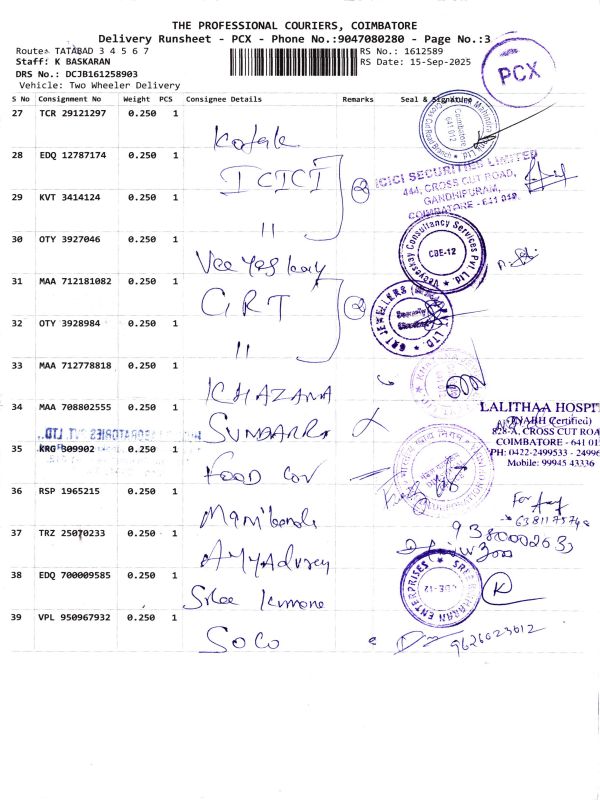 THE PROFESSIONAL COURIERS, COIMBATORE
Delivery Runsheet - PCX - Phone No.:9047080280 - Page No.:3
Route: TATABAD 3 4 5 6 7
RS No.: 1612589
Staff: K BASKARAN
RS Date: 15-Sep-2025
DRS No.: DCJB161258903
Vehicle: Two Wheeler Delivery
PCX
S No Consignment No Weight PCS Consignee Details Remarks Seal & Signature
27 TCR 29121297 0.250 1 Kotak
Coimbatore
641 012
28 EDQ 12787174 0.250 1 ICICI
2
ICICI SECURITIES LIMITED
444, CROSS CUT ROAD,
GANDHIPURAM,
COIMBATORE - 641 012
29 KVT 3414124 0.250 1 "
30 OTY 3927046 0.250 1 Veeyeskay
Veeyeskay Consultancy Services Pvt. Ltd.
CBE-12
31 MAA 712181082 0.250 1 GRT
2
GRT JEWELLERS
LTD.
32 OTY 3928984 0.250 1 "
33 MAA 712778818 0.250 1 KHAZANA
34 MAA 708802555 0.250 1 SUNDARRA
LALITHAA HOSPI
(NABH Certified)
828-A, CROSS CUT ROA
COIMBATORE - 641 01
PH: 0422-2499533 - 24996
Mobile: 99945 43336
35 KRG 309902 0.250 1 Food Cov
36 RSP 1965215 0.250 1
For
6381175740
37 TRZ 25070233 0.250 1
9380002633
38 EDQ 700009585 0.250 1 Sree Kumaran
ENTERPRISES
CBE-12
K
39 VPL 950967932 0.250 1 SOCO
9626023012